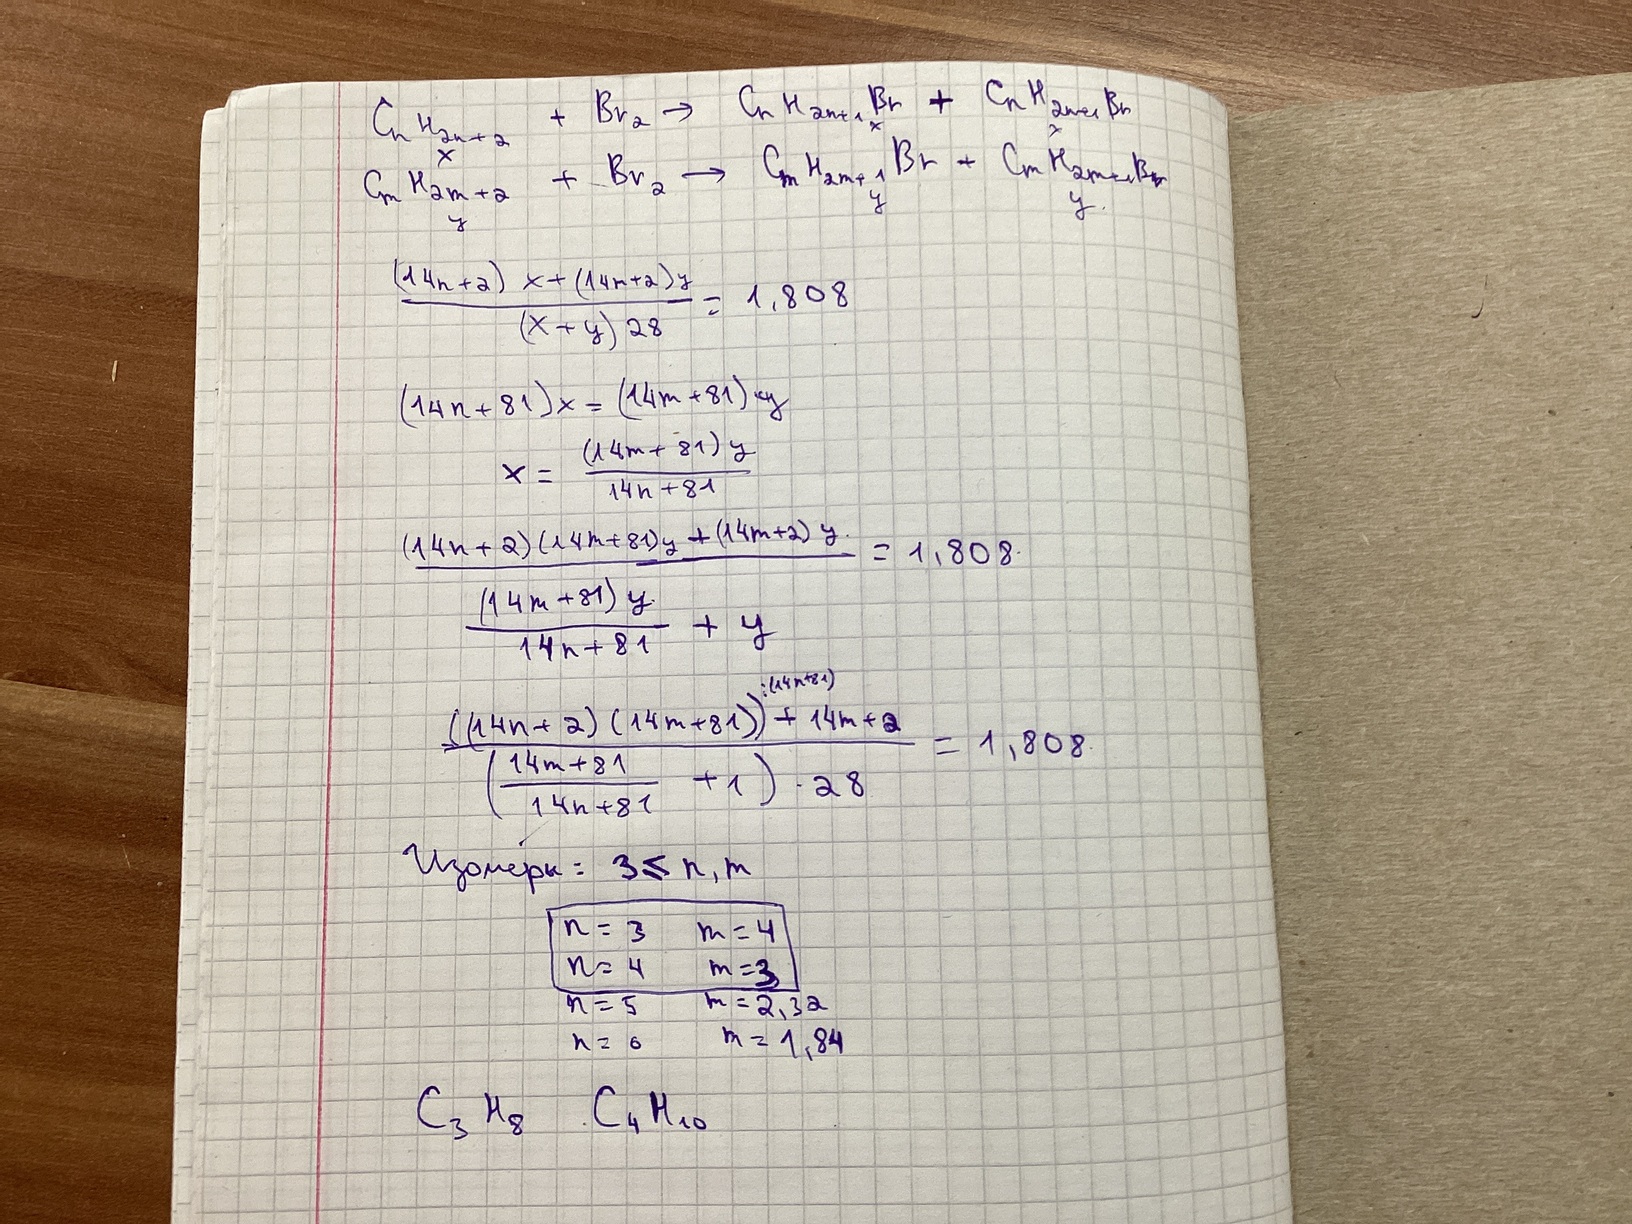 CnH2n+2 + Br2 → CnH2n+1Br + CnH2n+1Br
x x x
CmH2m+2 + Br2 → CmH2m+1Br + CmH2m+1Br
y y y.
(14n+2) x+(14m+2)y / (x+y) 28 = 1,808
(14n+81)x = (14m+81)y
x = (14m+81) y / 14n+81
(14n+2)(14m+81)y + (14m+2) y. / (14m+81) y. / 14n+81 + y = 1,808.
:(14n+81)
((14n+2)(14m+81)) + 14m+2 / (14m+81 / 14n+81 + 1) · 28 = 1,808.
Изомеры: 3 ≤ n, m
n = 3 m = 4
n = 4 m = 3
n = 5 m = 2,32
n = 6 m = 1,84
C3H8 C4H10